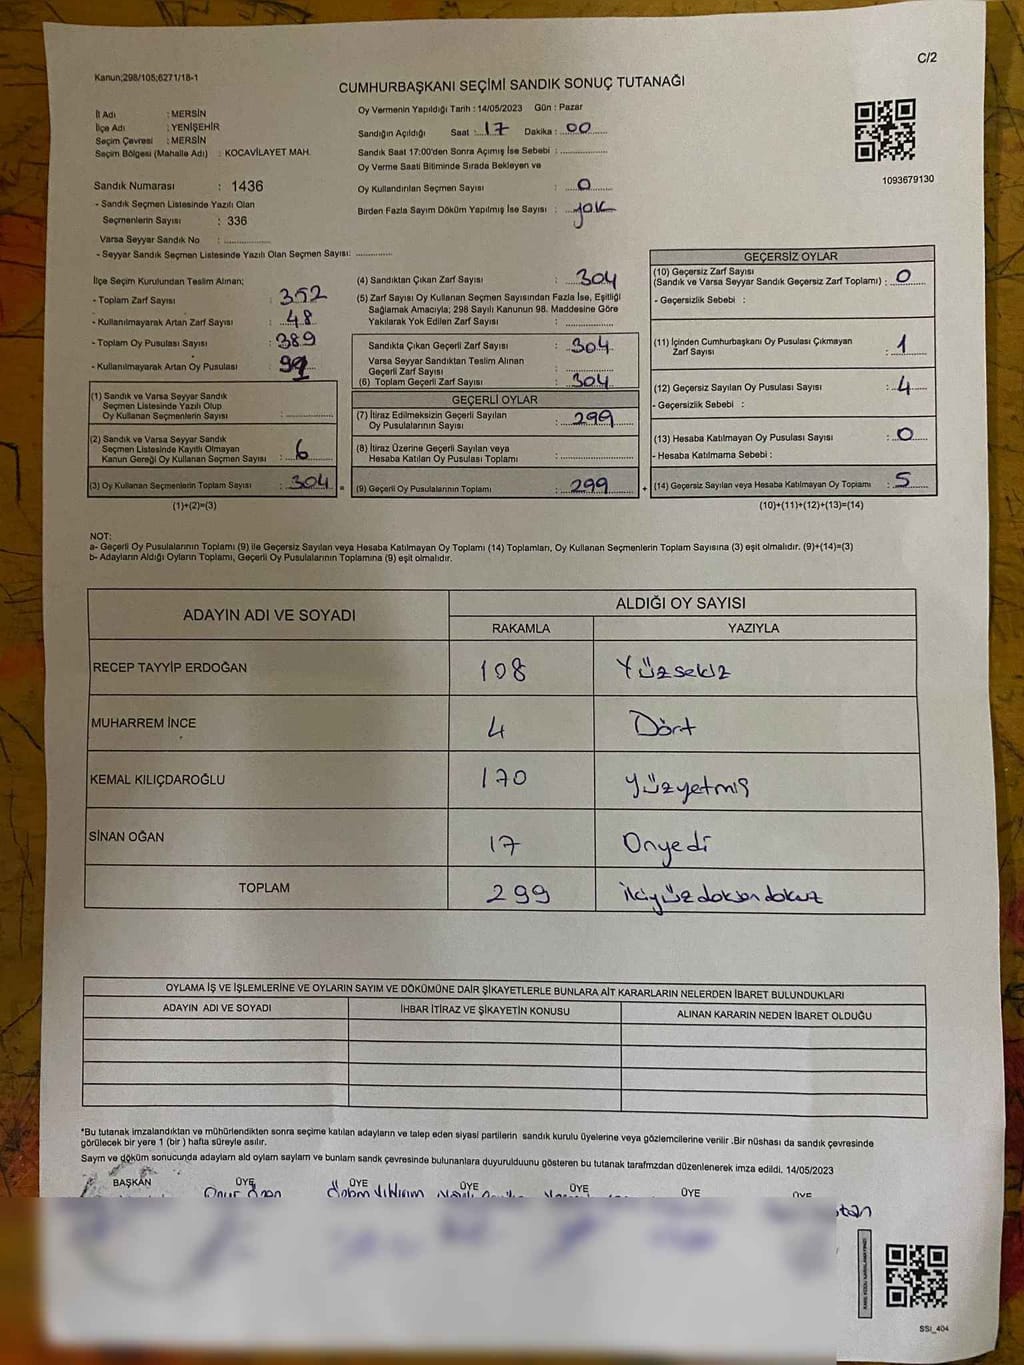 C/2
Kanun;298/105;6271/18-1
CUMHURBAŞKANI SEÇİMİ SANDIK SONUÇ TUTANAĞI
İl Adı : MERSİN
İlçe Adı : YENİŞEHİR
Seçim Çevresi : MERSİN
Seçim Bölgesi (Mahalle Adı) : KOCAVİLAYET MAH.
Sandık Numarası : 1436
- Sandık Seçmen Listesinde Yazılı Olan
Seçmenlerin Sayısı : 336
Varsa Seyyar Sandık No :
- Seyyar Sandık Seçmen Listesinde Yazılı Olan Seçmen Sayısı:
Oy Vermenin Yapıldığı Tarih : 14/05/2023 Gün : Pazar
Sandığın Açıldığı Saat : 17 Dakika : 00
Sandık Saat 17:00'den Sonra Açımış İse Sebebi :
Oy Verme Saati Bitiminde Sırada Bekleyen ve
Oy Kullandırılan Seçmen Sayısı : 0
Birden Fazla Sayım Döküm Yapılmış İse Sayısı : yok
1093679130
İlçe Seçim Kurulundan Teslim Alınan;
- Toplam Zarf Sayısı : 352
- Kullanılmayarak Artan Zarf Sayısı : 48
- Toplam Oy Pusulası Sayısı : 389
- Kullanılmayarak Artan Oy Pusulası :
(1) Sandık ve Varsa Seyyar Sandık
Seçmen Listesinde Yazılı Olup
Oy Kullanan Seçmenlerin Sayısı :
(2) Sandık ve Varsa Seyyar Sandık
Seçmen Listesinde Kayıtlı Olmayan
Kanun Gereği Oy Kullanan Seçmen Sayısı : 6
(3) Oy Kullanan Seçmenlerin Toplam Sayısı : 304
(1)+(2)=(3)
(4) Sandıktan Çıkan Zarf Sayısı : 304
(5) Zarf Sayısı Oy Kullanan Seçmen Sayısından Fazla İse, Eşitliği
Sağlamak Amacıyla; 298 Sayılı Kanunun 98. Maddesine Göre
Yakılarak Yok Edilen Zarf Sayısı :
Sandıkta Çıkan Geçerli Zarf Sayısı : 304
Varsa Seyyar Sandıktan Teslim Alınan
Geçerli Zarf Sayısı :
(6) Toplam Geçerli Zarf Sayısı : 304
GEÇERLİ OYLAR
(7) İtiraz Edilmeksizin Geçerli Sayılan
Oy Pusulalarının Sayısı : 299
(8) İtiraz Üzerine Geçerli Sayılan veya
Hesaba Katılan Oy Pusulası Toplamı :
= (9) Geçerli Oy Pusulalarının Toplamı : 299
GEÇERSİZ OYLAR
(10) Geçersiz Zarf Sayısı
(Sandık ve Varsa Seyyar Sandık Geçersiz Zarf Toplamı) : 0
- Geçersizlik Sebebi :
(11) İçinden Cumhurbaşkanı Oy Pusulası Çıkmayan
Zarf Sayısı : 1
(12) Geçersiz Sayılan Oy Pusulası Sayısı : 4
- Geçersizlik Sebebi :
(13) Hesaba Katılmayan Oy Pusulası Sayısı : 0
- Hesaba Katılmama Sebebi :
+ (14) Geçersiz Sayılan veya Hesaba Katılmayan Oy Toplamı : 5
(10)+(11)+(12)+(13)=(14)
NOT:
a- Geçerli Oy Pusulalarının Toplamı (9) ile Geçersiz Sayılan veya Hesaba Katılmayan Oy Toplamı (14) Toplamları, Oy Kullanan Seçmenlerin Toplam Sayısına (3) eşit olmalıdır. (9)+(14)=(3)
b- Adayların Aldığı Oyların Toplamı, Geçerli Oy Pusulalarının Toplamına (9) eşit olmalıdır.
ADAYIN ADI VE SOYADI ALDIĞI OY SAYISI
RAKAMLA YAZIYLA
RECEP TAYYİP ERDOĞAN 108 Yüzsekiz
MUHARREM İNCE 4 Dört
KEMAL KILIÇDAROĞLU 170 Yüzyetmiş
SİNAN OĞAN 17 Onyedi
TOPLAM 299 ikiyüzdoksandokuz
OYLAMA İŞ VE İŞLEMLERİNE VE OYLARIN SAYIM VE DÖKÜMÜNE DAİR ŞİKAYETLERLE BUNLARA AİT KARARLARIN NELERDEN İBARET BULUNDUKLARI
ADAYIN ADI VE SOYADI İHBAR İTİRAZ VE ŞİKAYETİN KONUSU ALINAN KARARIN NEDEN İBARET OLDUĞU
*Bu tutanak imzalandıktan ve mühürlendikten sonra seçime katılan adayların ve talep eden siyasi partilerin sandık kurulu üyelerine veya gözlemcilerine verilir .Bir nüshası da sandık çevresinde
görülecek bir yere 1 (bir ) hafta süreyle asılır.
Sayım ve döküm sonucunda adayların aldı oylam saylam ve bunlam sandk çevresinde bulunanlara duyurulduunu gösteren bu tutanak tarafmzdan düzenlenerek imza edildi. 14/05/2023
BAŞKAN ÜYE ÜYE ÜYE ÜYE ÜYE ÜYE
SSI_404